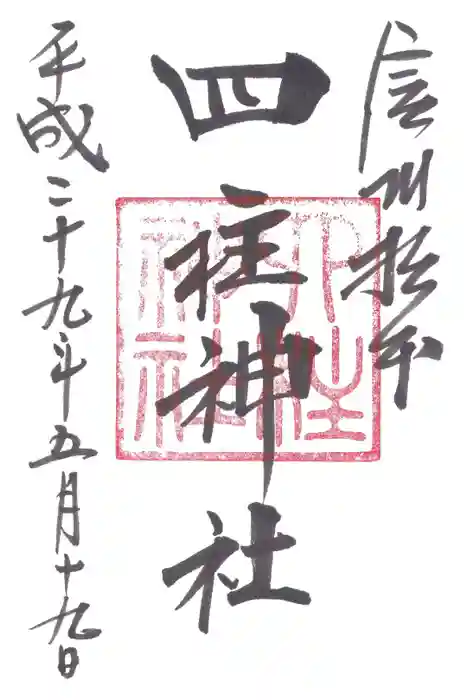 信州松本
四柱神社
平成二十九年五月十九日
四柱神社